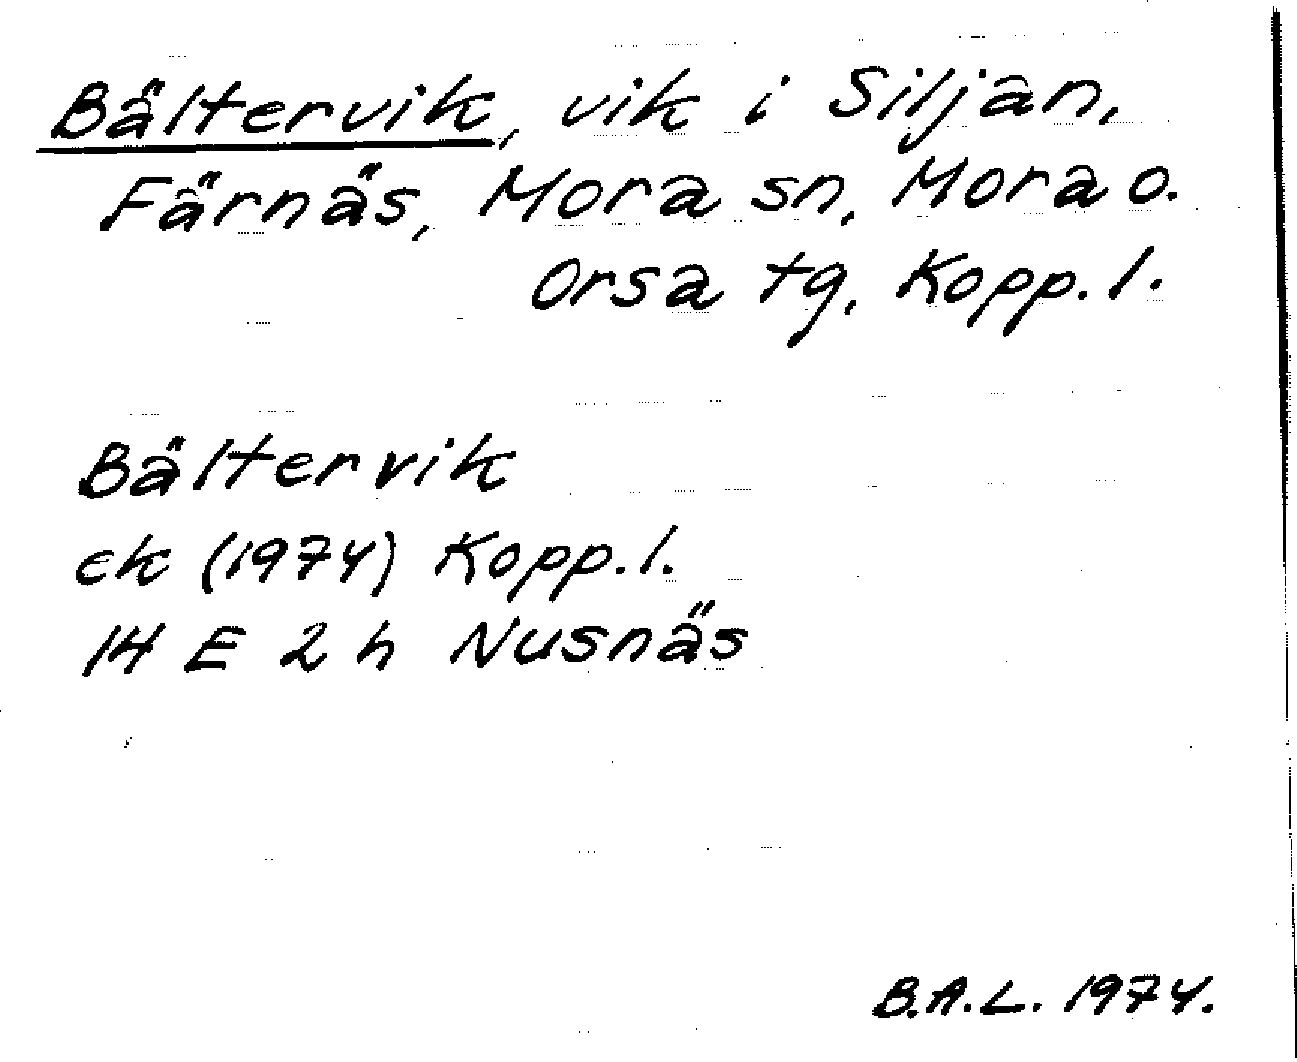 Bältervik, vik i Siljan,
Färnäs, Mora sn, Mora o.
Orsa tg, Kopp. l.
Bältervik
ek (1974) Kopp. l.
14 E 2 h Nusnäs
B.A.L. 1974.